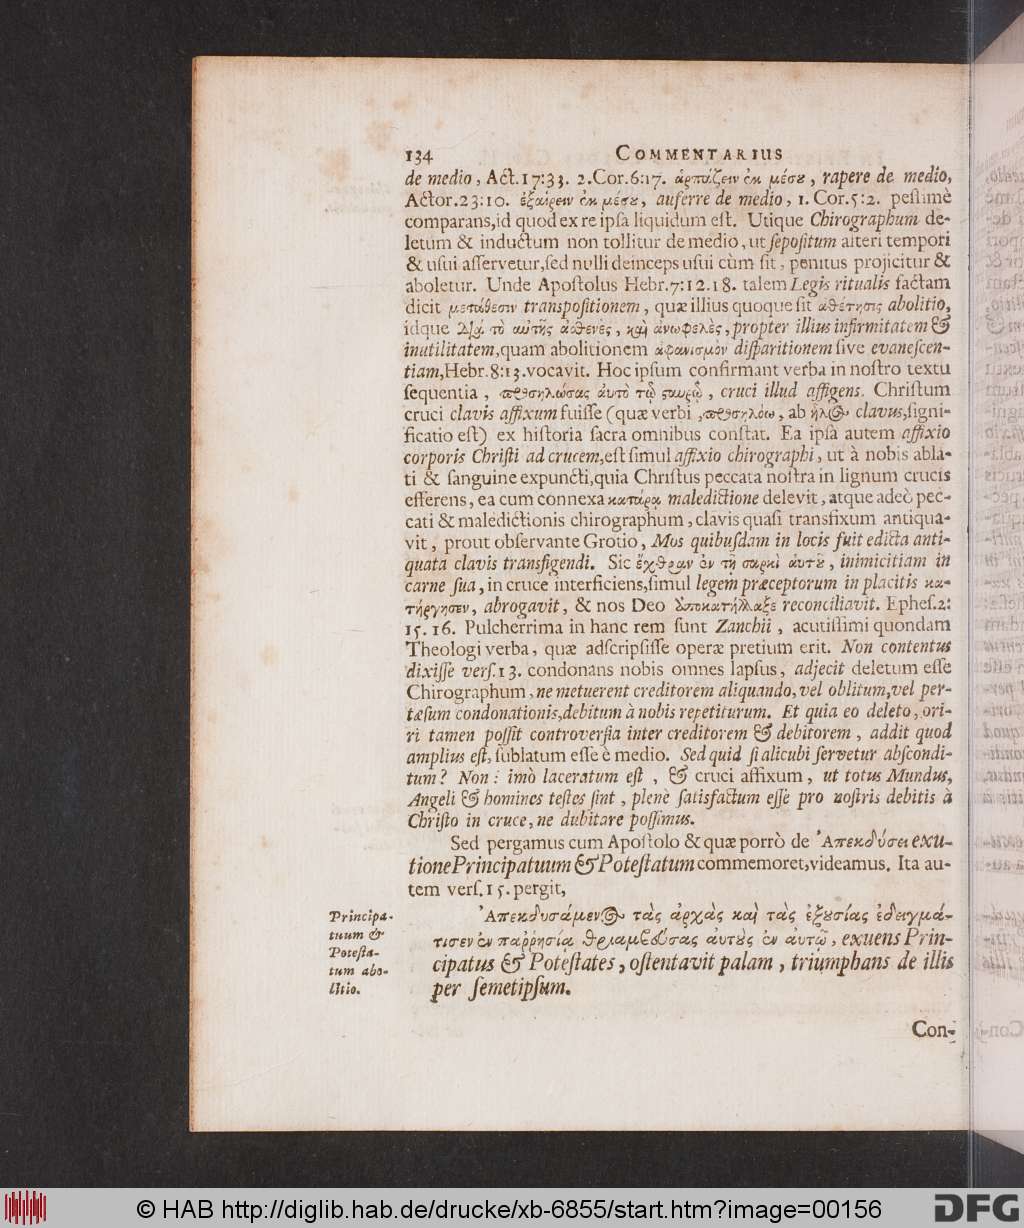 134 COMMENTARIUS
de medio, Act. 17:33. 2. Cor. 6:17. ἁρπάζειν ἐκ μέσȣ, rapere de medio,
Actor. 23:10. ἐξαίρειν ἐκ μέσȣ, auferre de medio, 1. Cor. 5:2. peſſimè
comparans, id quod ex re ipſa liquidum eſt. Utique Chirographum de-
letum & inductum non tollitur de medio, ut ſepoſitum alteri tempori
& uſui aſſervetur, ſed nulli deinceps uſui cùm ſit, penitus projicitur &
aboletur. Unde Apoſtolus Hebr. 7:12. 18. talem Legis ritualis factam
dicit μετάθεσιν transpoſitionem, quæ illius quoque ſit ἀθέτησις abolitio,
idque Διὰ τὸ αὐτῆς ἀσθενὲς, καὶ ἀνωφελὲς, propter illius infirmitatem &
inutilitatem, quam abolitionem ἀφανισμὸν diſparitionem ſive evaneſcen-
tiam, Hebr. 8:13. vocavit. Hoc ipſum confirmant verba in noſtro textu
ſequentia, προσηλώσας ἀυτὸ τῷ ςαυρῷ, cruci illud affigens. Chriſtum
cruci clavis affixum fuiſſe (quæ verbi, προσηλόω, ab ἧλος clavus, ſigni-
ficatio eſt) ex hiſtoria ſacra omnibus conſtat. Ea ipſa autem affixio
corporis Chriſti ad crucem, eſt ſimul affixio chirographi, ut à nobis abla-
ti & ſanguine expuncti, quia Chriſtus peccata noſtra in lignum crucis
efferens, ea cum connexa κατάρᾳ maledictione delevit, atque adeò pec-
cati & maledictionis chirographum, clavis quaſi transfixum antiqua-
vit, prout obſervante Grotio, Mos quibuſdam in locis fuit edicta anti-
quata clavis transfigendi. Sic ἔχθραν ἐν τῇ σαρκὶ ἁυτȣ͂, inimicitiam in
carne ſua, in cruce interficiens, ſimul legem præceptorum in placitis κα-
τήργησεν, abrogavit, & nos Deo ὑποκατήλλαξε reconciliavit. Epheſ. 2:
15. 16. Pulcherrima in hanc rem ſunt Zanchii, acutiſſimi quondam
Theologi verba, quæ adſcripſiſſe operæ pretium erit. Non contentus
dixiſſe verſ. 13. condonans nobis omnes lapſus, adjecit deletum eſſe
Chirographum, ne metuerent creditorem aliquando, vel oblitum, vel per-
tæſum condonationis, debitum à nobis repetiturum. Et quia eo deleto, ori-
ri tamen poſſit controverſia inter creditorem & debitorem, addit quod
amplius eſt, ſublatum eſſe è medio. Sed quid ſi alicubi ſervetur abſcondi-
tum? Non: imò laceratum eſt, & cruci affixum, ut totus Mundus,
Angeli & homines teſtes ſint, plenè ſatisfactum eſſe pro noſtris debitis à
Chriſto in cruce, ne dubitare poſſimus.
Sed pergamus cum Apoſtolo & quæ porrò de Ἀπεκδύσει exu-
tione Principatuum & Poteſtatum commemoret, videamus. Ita au-
tem verſ. 15. pergit,
Principa-
tuum &
Poteſta-
tum abo-
litio.
Ἀπεκδυσάμενος τὰς ἀρχὰς καὶ τὰς ἐξȣσίας ἐδειγμά-
τισεν ἐν παῤῥησίᾳ θριαμβεύσας ἀυτȣ̀ς ἐν ἁυτῷ, exuens Prin-
cipatus & Poteſtates, oſtentavit palam, triumphans de illis
per ſemetipſum.
Con-
© HAB http://diglib.hab.de/drucke/xb-6855/start.htm?image=00156
DFG